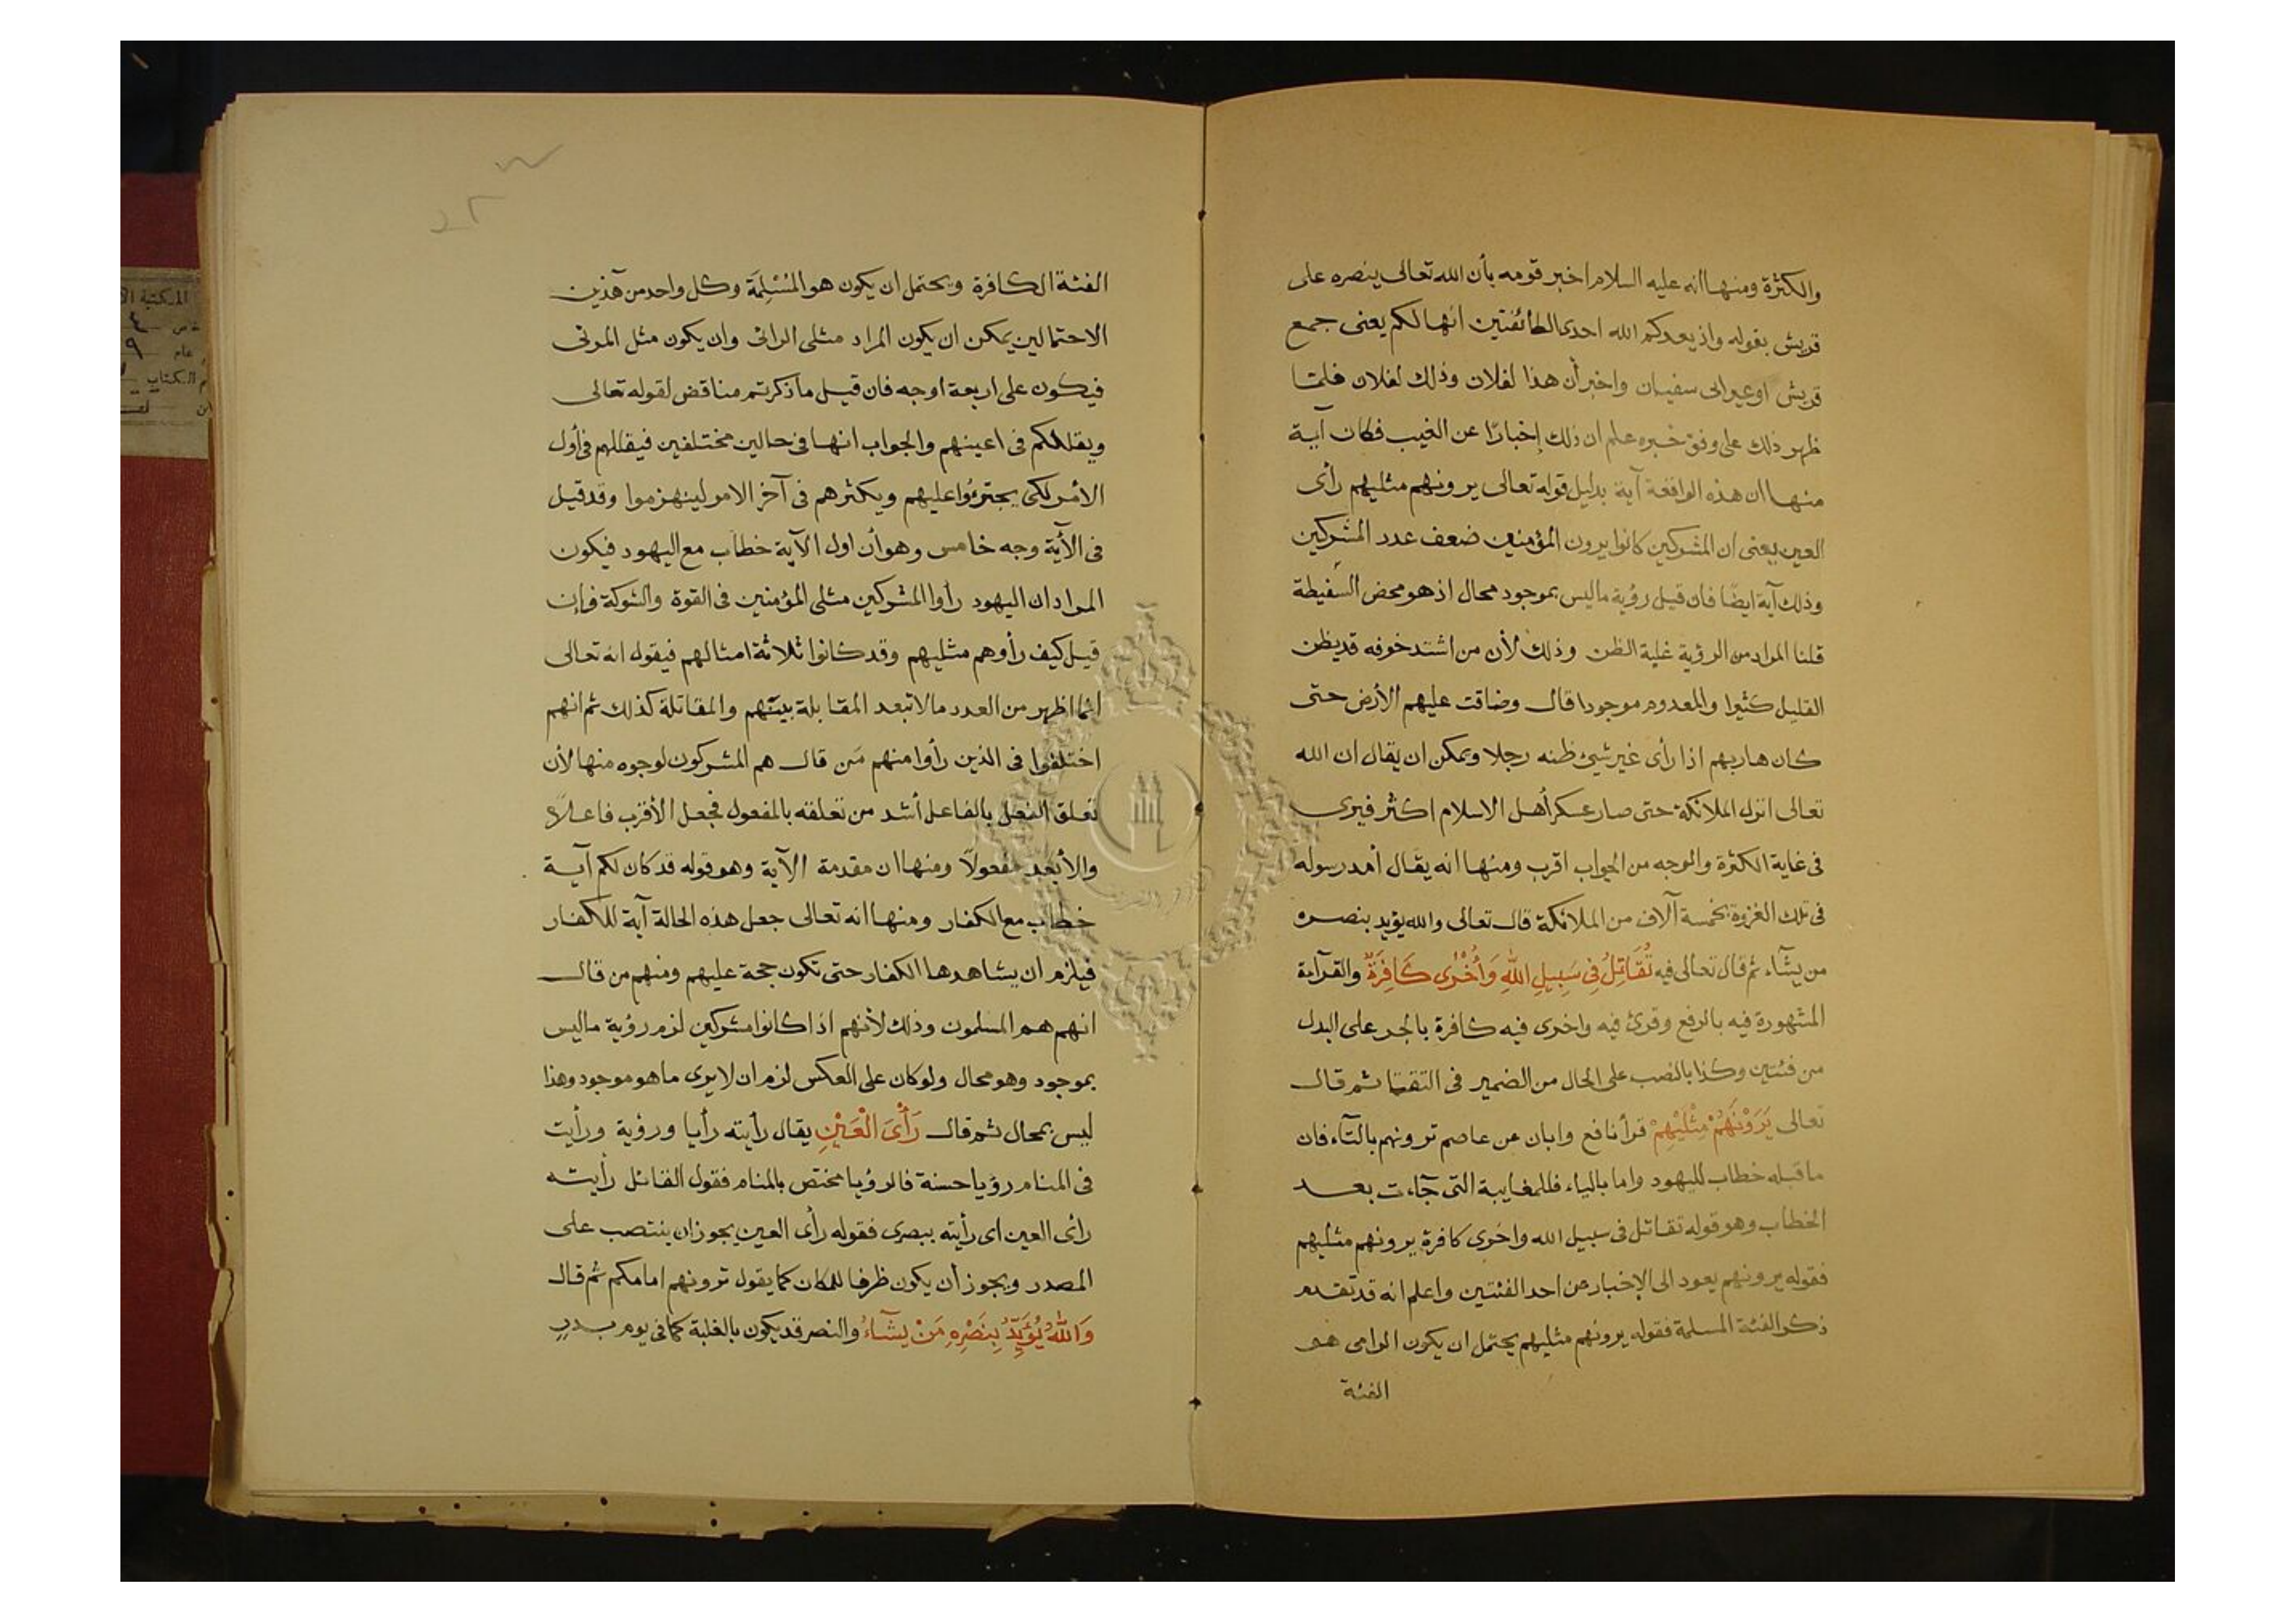 والكثرة ومنها انه عليه السلام اخبر قومه بأن الله تعالى ينصره على
قريش بقوله واذ يعدكم الله احدى الطائفتين انها لكم يعنى جمع
قريش اوعير ابى سفيان واخبر أن هذا لفلان وذلك لفلان فلمّا
ظهر ذلك على وفق خبره علم ان ذلك إخبارًا عن الغيب فكان آية
منها ان هذه الواقعة آية بدليل قوله تعالى يرونهم مثليهم رأى
العين يعنى ان المشركين كانوا يرون المؤمنين ضعف عدد المشركين
وذلك آية ايضًا فان قيل رؤية ماليس بموجود محال اذ هو محض السفيطة
قلنا المراد من الرؤية غلبة الظن وذلك لأن من اشتد خوفه قد يظن
القليل كثيرا والمعدوم موجودا قال وضاقت عليهم الأرض حتى
كان هاربهم اذا رأى غير شيئ ظنه رجلا ويمكن ان يقال ان الله
تعالى انزل الملائكة حتى صار عسكر أهل الاسلام اكثر فيرى
فى غاية الكثرة والوجه من الجواب اقرب ومنها انه يقال أمد رسوله
فى تلك الغزوة بخمسة آلاف من الملائكة قال تعالى والله يؤيد بنصره
من يشآء ثم قال تعالى فيه تُقَاتِلُ فِى سَبِيلِ اللهِ وَأُخْرٰى كَافِرَةٌ والقرآءة
المشهورة فيه بالرفع وقرئ فيه واخرى فيه كافرة بالجر على البدل
من فئتين وكذا بالنصب على الحال من الضمير فى التقتا ثم قال
تعالى يَرَوْنَهُمْ مِثْلَيْهِمْ قرأ نافع وابان عن عاصم ترونهم بالتآء فان
ما قبله خطاب لليهود واما بالياء فللمغايبة التى جآءت بعد
الخطاب وهو قوله تقاتل فى سبيل الله واخرى كافرة يرونهم مثليهم
فقوله يرونهم يعود الى الإخبار عن احد الفئتين واعلم انه قد تقدم
ذكر الفئة المسلمة فقوله يرونهم مثليهم يحتمل ان يكون الرامى هم
الفئة
الفئة الكافرة ويحتمل ان يكون هو المُسْلِمَة وكل واحد من هٓذين
الاحتمالين يمكن ان يكون المراد مثلى الرائى وان يكون مثل المرئى
فيكون على اربعة اوجه فان قيل ما ذكرتم مناقض لقوله تعالى
ويقللكم فى اعينهم والجواب انها فى حالين مختلفين فيقللهم فى أول
الأمر لكى يجترؤا عليهم ويكثرهم فى آخر الامر لينهزموا وقد قيل
فى الأية وجه خامس وهو أن اول الآية خطاب مع اليهود فيكون
المراد ان اليهود رأوا المشركين مثلى المؤمنين فى القوة والشوكة فإن
قيل كيف رأوهم مثليهم وقد كانوا ثلاثة امثالهم فيقول انه تعالى
انما اظهر من العدد مالا تبعد المقابلة بينهم والمقاتلة كذلك ثم انهم
اختلفوا فى الذين رأوا منهم مَن قال هم المشركون لوجوه منها لأن
تعلق الفعل بالفاعل أشد من تعلقه بالمفعول فجعل الأقرب فاعلاً
والأبعد مفعولاً ومنها ان مقدمة الآية وهو قوله قد كان لكم آية
خطاب مع الكفار ومنها انه تعالى جعل هذه الحالة آية للكفار
فيلزم ان يشاهدها الكفار حتى تكون حجة عليهم ومنهم من قال
انهم هم المسلمون وذلك لأنهم اذا كانوا مشركين لزم رؤية ماليس
بموجود وهو محال ولوكان على العكس لزم ان لا يرى ما هو موجود وهذا
ليس بمحال ثم قال رَأْىَ الْعَيْنِ يقال رأيته رأيا ورؤية ورأيت
فى المنام رؤيا حسنة فالرؤيا مختص بالمنام فقول القائل رأيته
رأى العين اى رأيته ببصرى فقوله رأى العين يجوز ان ينتصب على
المصدر ويجوز أن يكون ظرفا للمكان كما يقول ترونهم امامكم ثم قال
وَاللهُ يُؤَيِّدُ بِنَصْرِهِ مَنْ يَشَآءُ والنصر قد يكون بالغلبة كما فى يوم بدرٍ